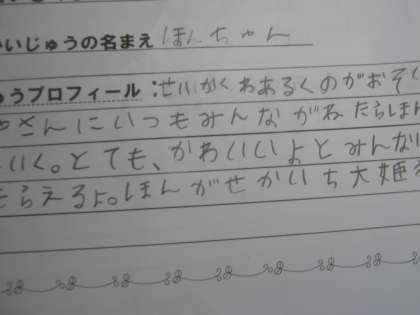 いじゅうの名まえ ほんちゃん
ゅうプロフィール：せいかくわあるくのがおそく
やさんにいつもみんながねたらほん
いく。とても、かわいいよとみんな
もらえるよ。ほんがせかいち大姫